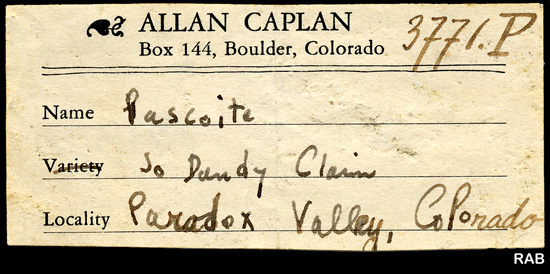 ALLAN CAPLAN
Box 144, Boulder, Colorado
3771.P
Name Pascoite
Variety Jo Dandy Claim
Locality Paradox Valley, Colorado
RAB